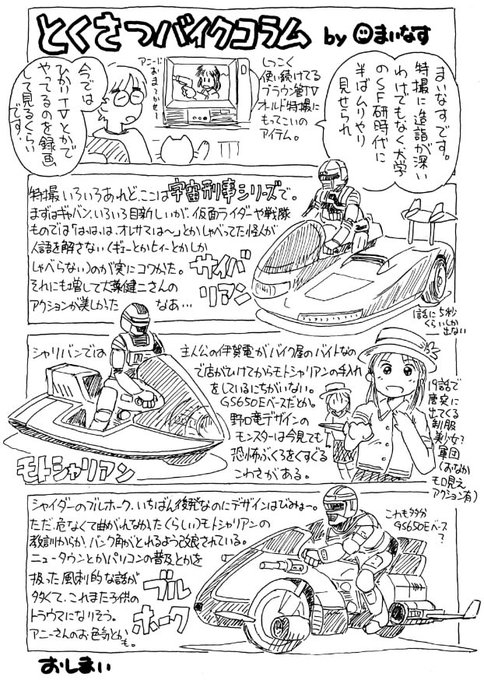 とくさつバイクコラム by まいなす
まいなすです。
特撮に造詣が深い
わけでもなく大学
のSF研時代に
半ばムリヤリ
見せられ
しつこく
使い続けてる
ブラウン管TV
オルド特撮に
もってこいの
アイテム。
今では
ひかりTVとかで
やってるのを録画
して見るくらい
です。
特撮いろいろあれど、ここは宇宙刑事シリーズで。
まずはギャバン、いろいろ目新しいが、仮面ライダーや戦隊
ものでは「はははは、オレサマは〜」とかしゃべってた怪人が
人語を解さない(ギョーとかヒィーとかしか
しゃべらない)のが実にコワかた。
それにも増して大葉健二さんの
アクションが美しかった なあ…
サイバリアン
1話に5秒
くらいしか
出ない
シャリバンでは
主人公の伊賀電がバイク屋のバイトなの
であがいてからモトシャリアンの手入れ
をしているにちがいない。
GS650Eベースだとか。
野口竜デザインの
モンスターは今見ても
恐怖がふくろをすぐる
こわさがある。
モトシャリアン
19話で
唐突に
出てくる
制服
美少女?
軍団
(おなか
モロ見え
アクション有)
シャイダーのブルホーク、いちばん後発なのにデザインはびみょー。
ただ、危なくて曲がんなかった(らしい)モトシャリアンの
教訓からか、バンク角がとれるよう改良されている。
ニュータウンとかパソコンの普及とかを
扱った風刺的な話が
多くて、これまた子供の
トラウマになりそう。
アニーさんのお色気とかも。
ブルホーク
これも多分
GS650Eベース
?
おしまい